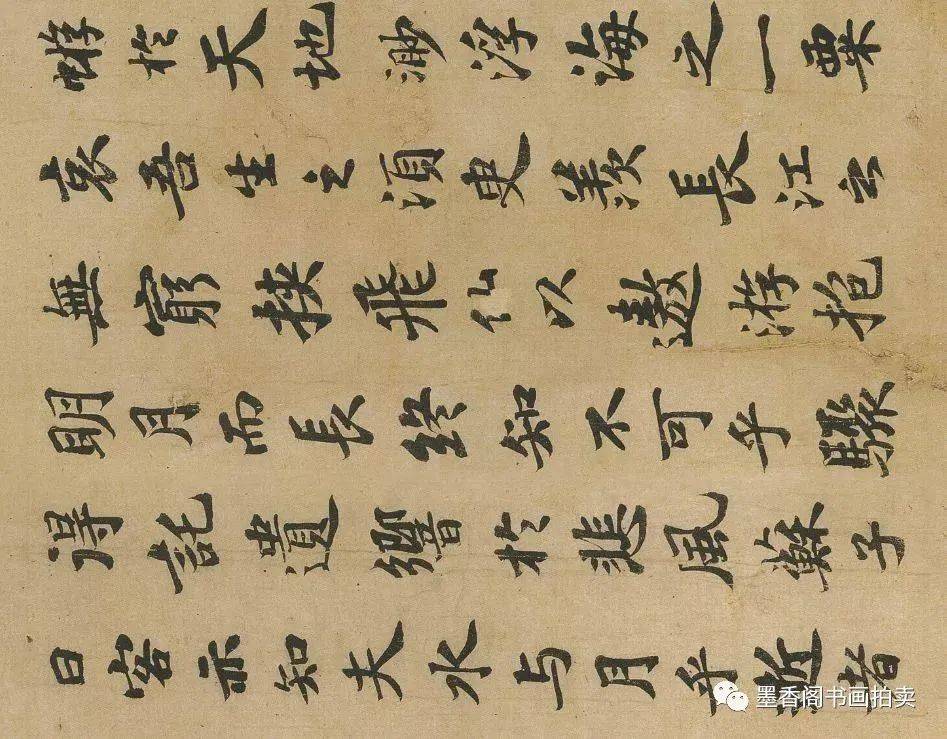 蝣於天地渺浮海之一粟
哀吾生之須臾羨長江之
無窮挾飛仙以遨游抱
明月而長終知不可乎驟
得託遺響於悲風蘇子
曰客亦知夫水与月乎逝者
墨香阁书画拍卖